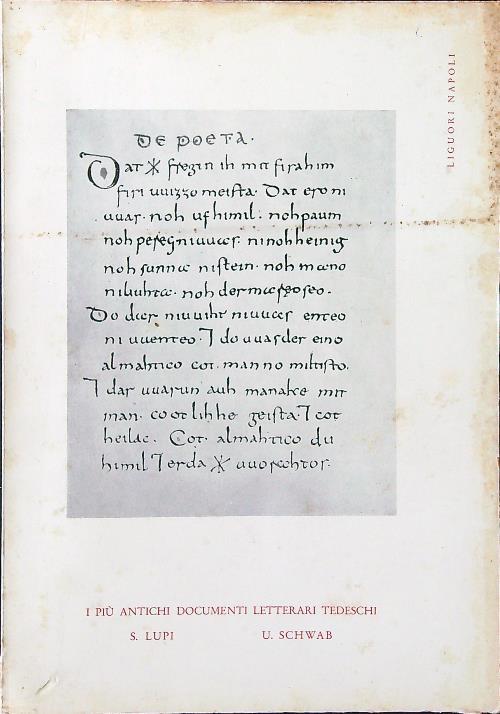 LIGUORI NAPOLI
DE POETA.
Dat * fregin ih mit firahim
firi uuizzo meista. Dat ero ni
uuas. noh ufhimil. noh paum
noh peregniuuas. ninohheinig
noh sunna nistein. noh mano
niliuhta. noh der mareoseo.
Do dar niuuiht niuuas enteo
ni uuenteo. ⁊ do uuas der eino
almahtico cot. manno miltisto.
⁊ dar uuarun auh manake mit
inan. cootlihhe geista. ⁊ cot
heilac. Cot almahtico du
himil ⁊ erda * uuorahtos.
I PIÙ ANTICHI DOCUMENTI LETTERARI TEDESCHI
S. LUPI U. SCHWAB